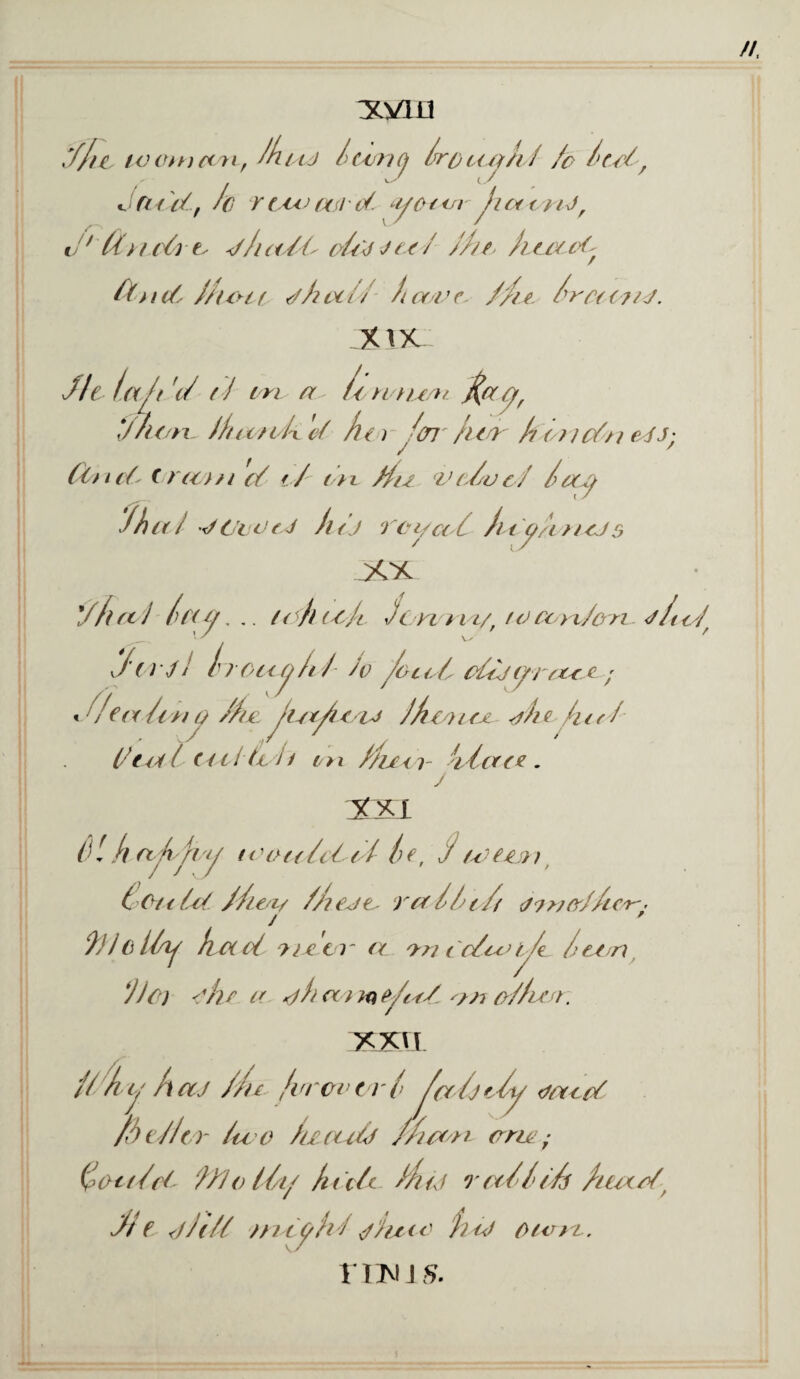 11.
XVIII
The woman, thus being brought to bed,
Said, to reward your pains,
St Andre shall dissect the head
And thou shall have the brains.
XIX
He lap'd it in a linnen Rag,
Then thank'd her for her kindness;
And cram'd it in the velvet bag
That serves his royal highness
XX
That bag... which Jenny, wanton slut,
First brought to foul disgrace;
Stealing the papers thence she put
Veal cutlets in their place.
XXI
O! happy would it be, I ween,
Could they these rabbits smother;
Molly had ne'er a midwife been,
Nor she a shameful mother.
XXII
Why has the proverb falsely said
Better two heads than one;
Could Molly hide this rabbits head,
He still might shew his own.
FINIS.